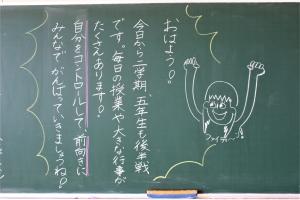 おはよう！
今日から二学期、五年生も後半戦
です。毎日の授業や大きな行事が
たくさんあります！
自分をコントロールして、前向きに
みんなでがんばっていきましょうね！
ファイティーン！